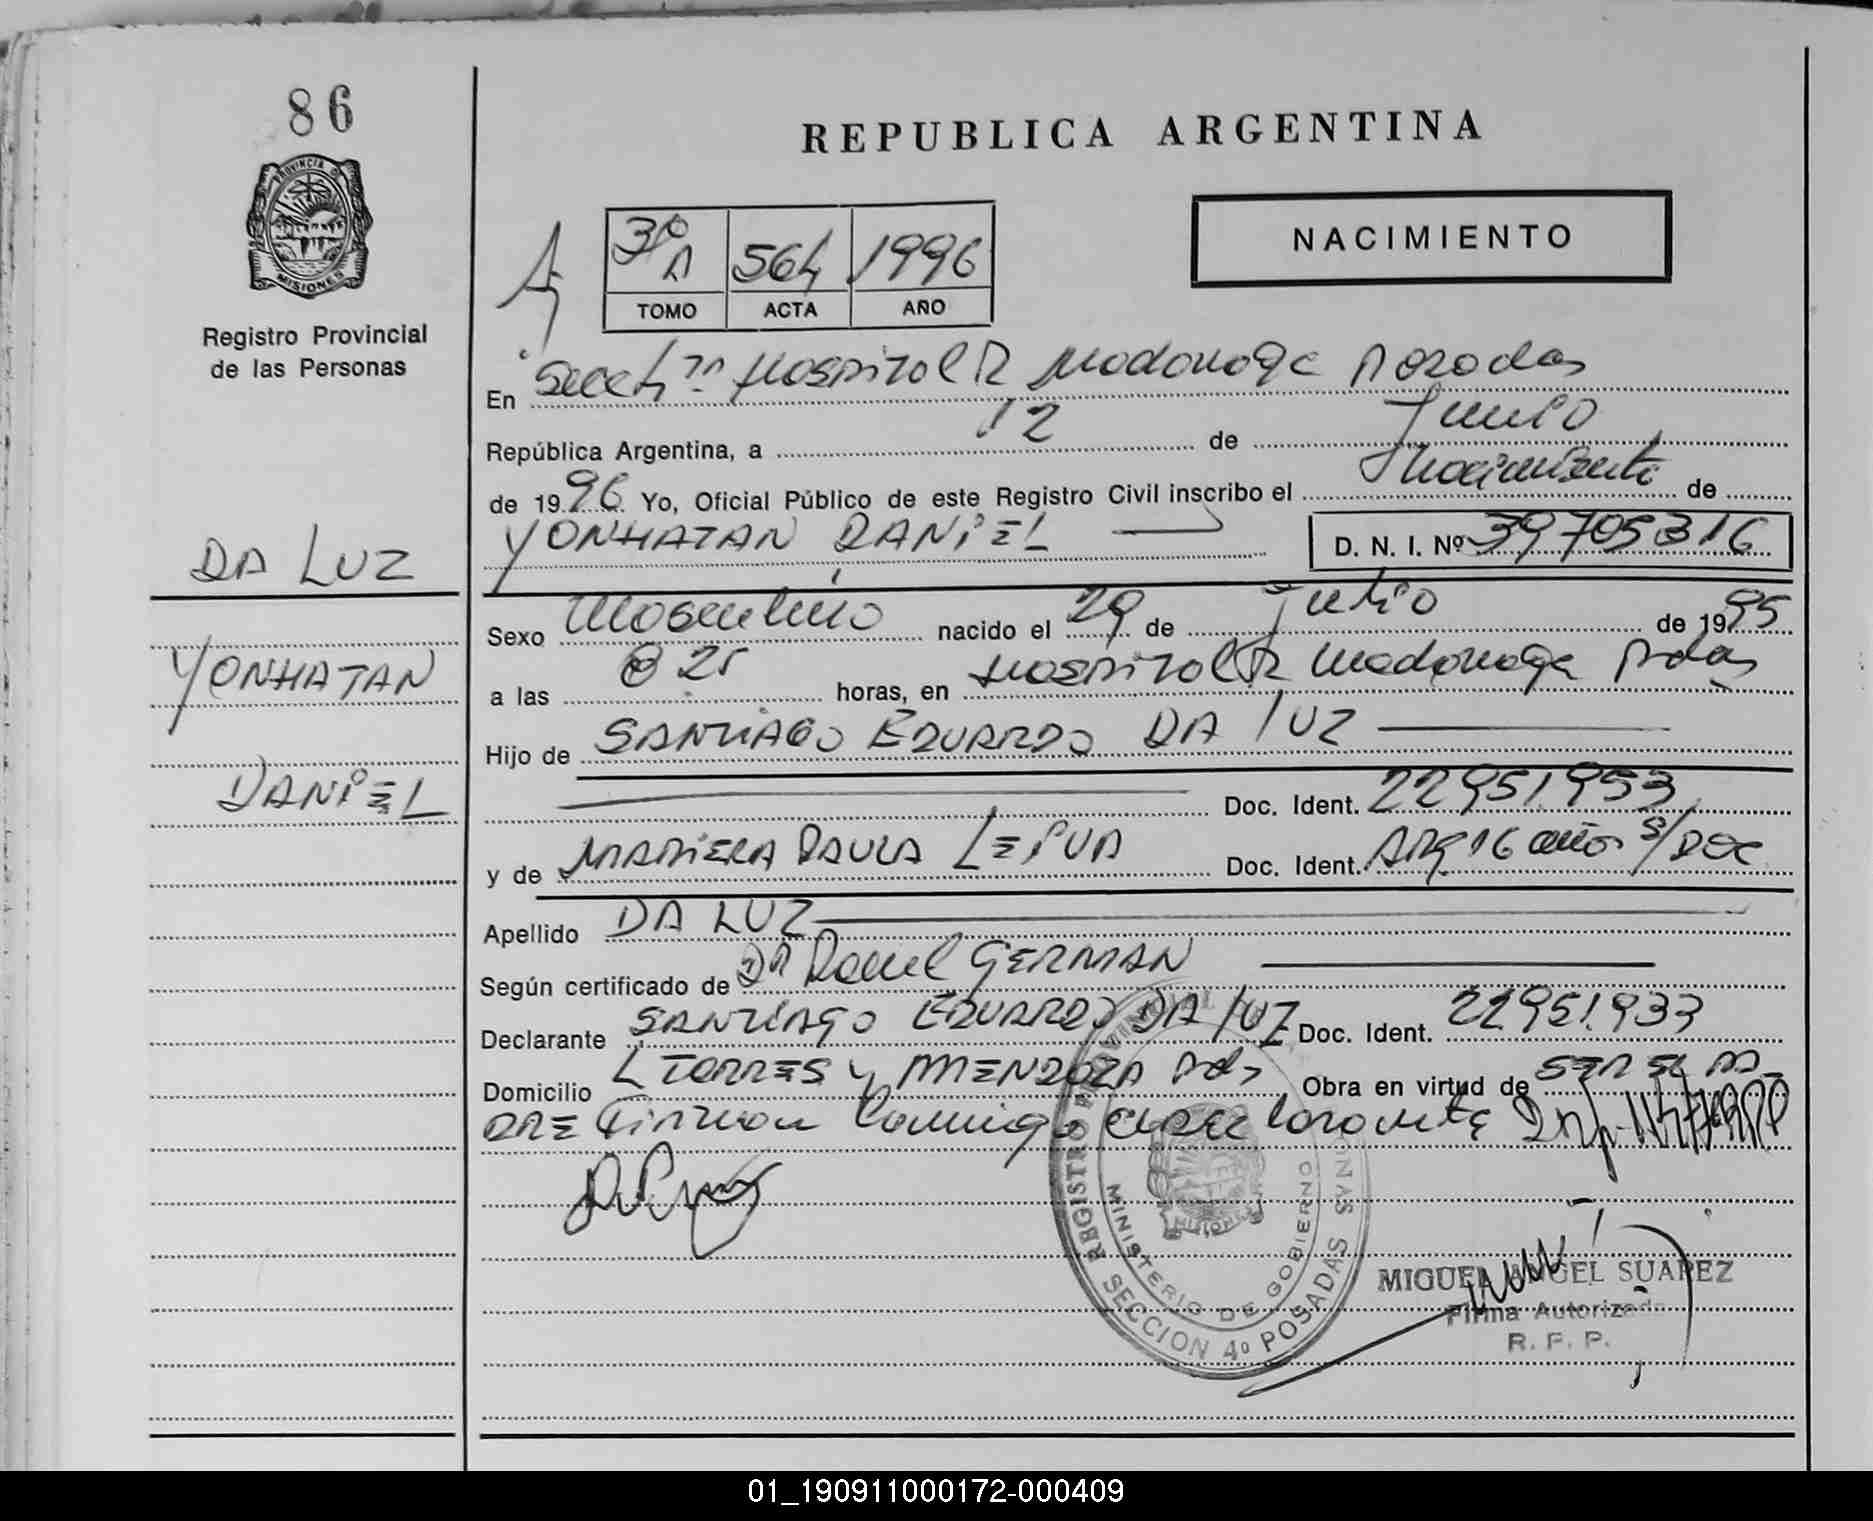 86
PROVINCIA DE
MISIONES
Registro Provincial
de las Personas
DA LUZ
YONHATAN
DANIEL
REPUBLICA ARGENTINA
NACIMIENTO
3º A 564 1996
TOMO ACTA AÑO
En Secc 4ª Hospital R Madariaga Posadas
República Argentina, a 12 de Junio
de 1996 Yo, Oficial Público de este Registro Civil inscribo el Nacimiento de
YONHATAN DANIEL D. N. I. Nº 39705316
Sexo Masculino nacido el 29 de Julio de 1995
a las 8 25 horas, en Hospital R Madariaga Pdas
Hijo de SANTIAGO EDUARDO DA LUZ
Doc. Ident. 22951953
y de MARIELA PAULA LEIVA Doc. Ident. ARg 16 años s/DOC
Apellido DA LUZ
Según certificado de DR Raul GERMAN
Declarante SANTIAGO EDUARDO DA LUZ Doc. Ident. 22951933
Domicilio L TORRES y MENDOZA Pdas Obra en virtud de SER EL PA
DRE
REGISTRO PROVINCIAL
MINISTERIO DE GOBIERNO
MISIONES
SECCION 4º POSADAS
MIGUEL ANGEL SUAREZ
Firma Autorizada
R. P. P.
01_190911000172-000409